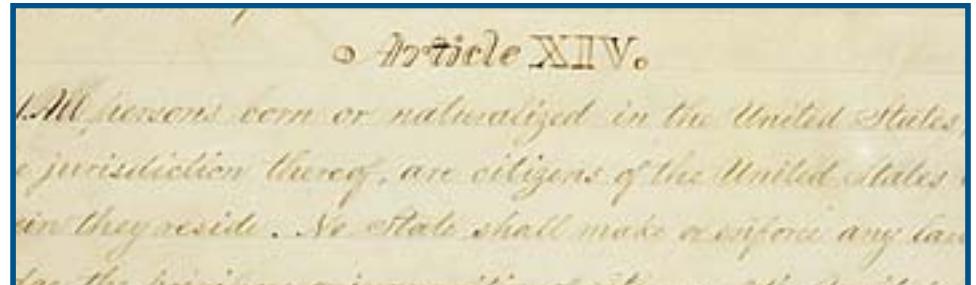 Article XIV.
1. All persons born or naturalized in the United States,
e jurisdiction thereof, are citizens of the United States
ein they reside. No State shall make or enforce any law